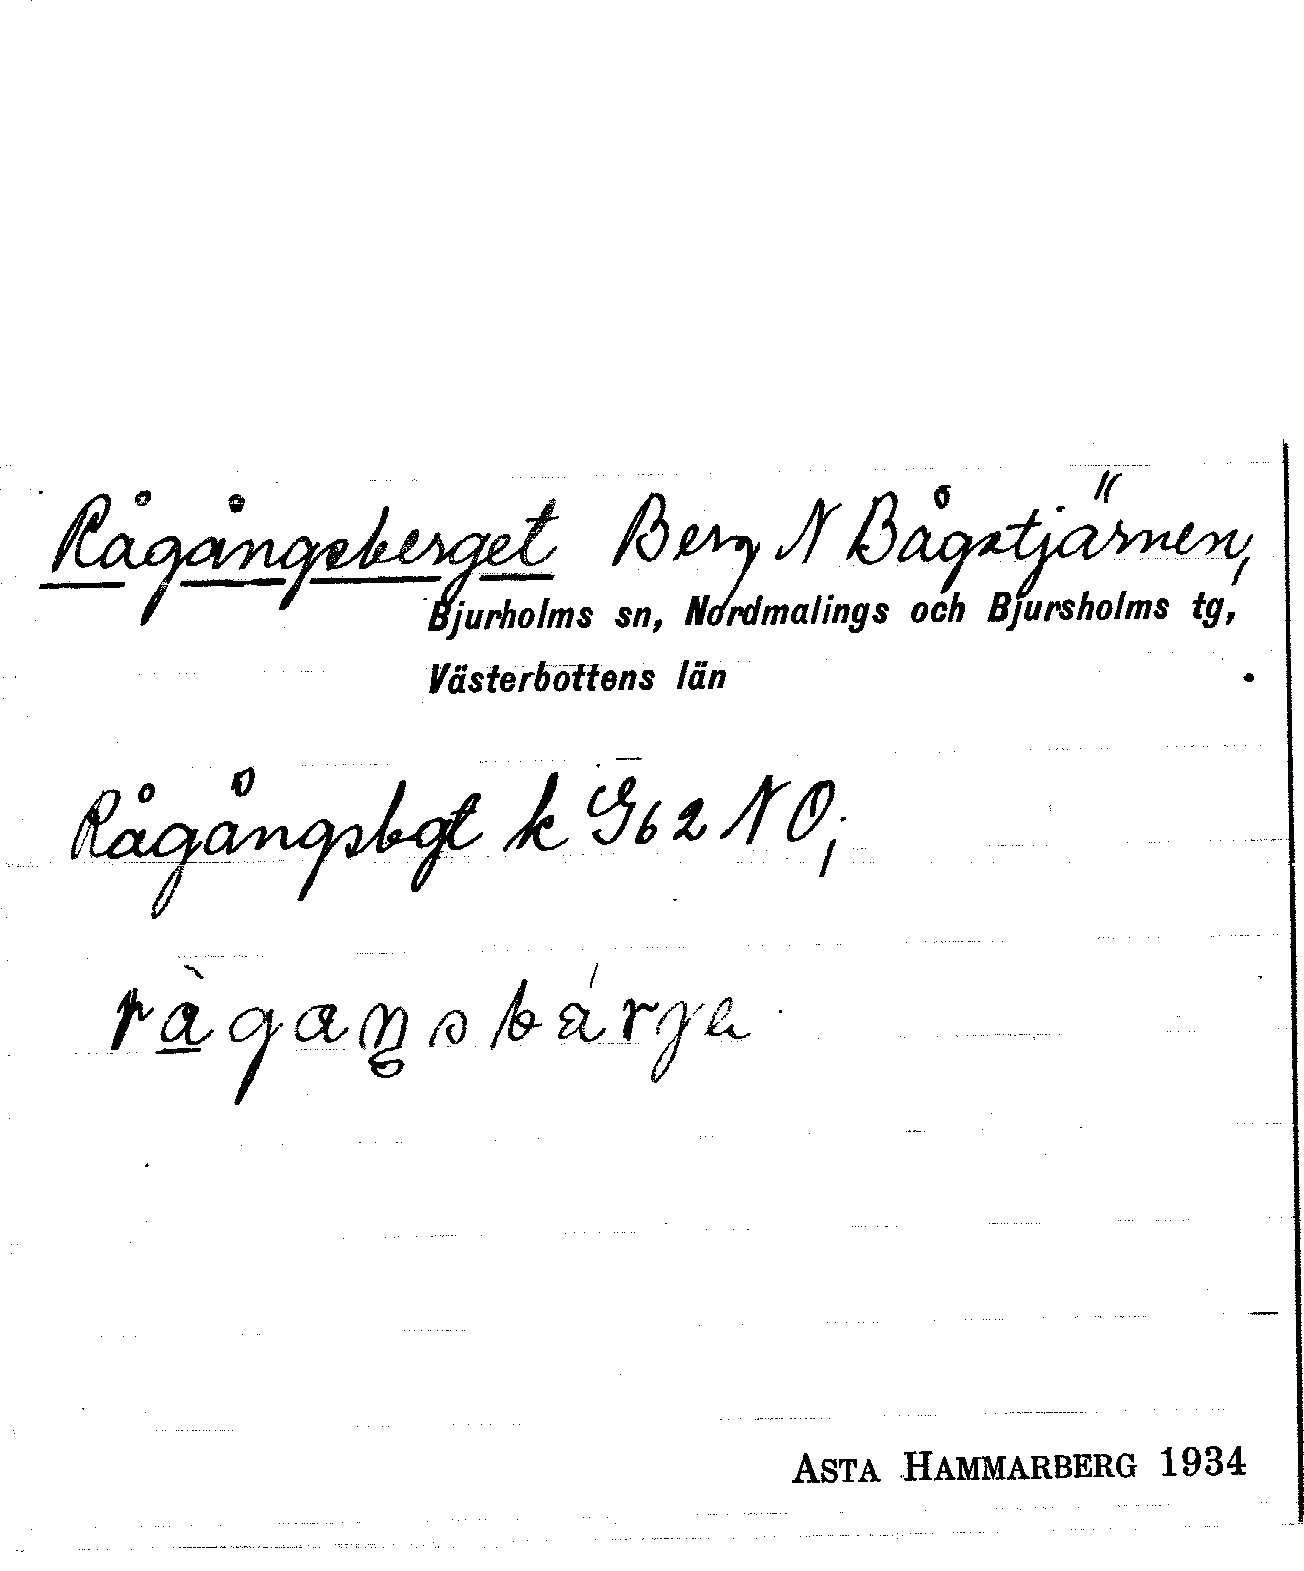 Rågångsberget Berg N Bågstjärnen,
Bjurholms sn, Nordmalings och Bjursholms tg,
Västerbottens län
Rågångsbgt k G62 NO;
ràgaŋsbárge
ASTA HAMMARBERG 1934